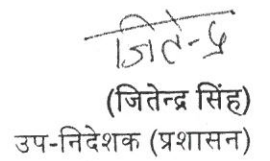 जितेन्द्र
(जितेन्द्र सिंह)
उप-निदेशक (प्रशासन)